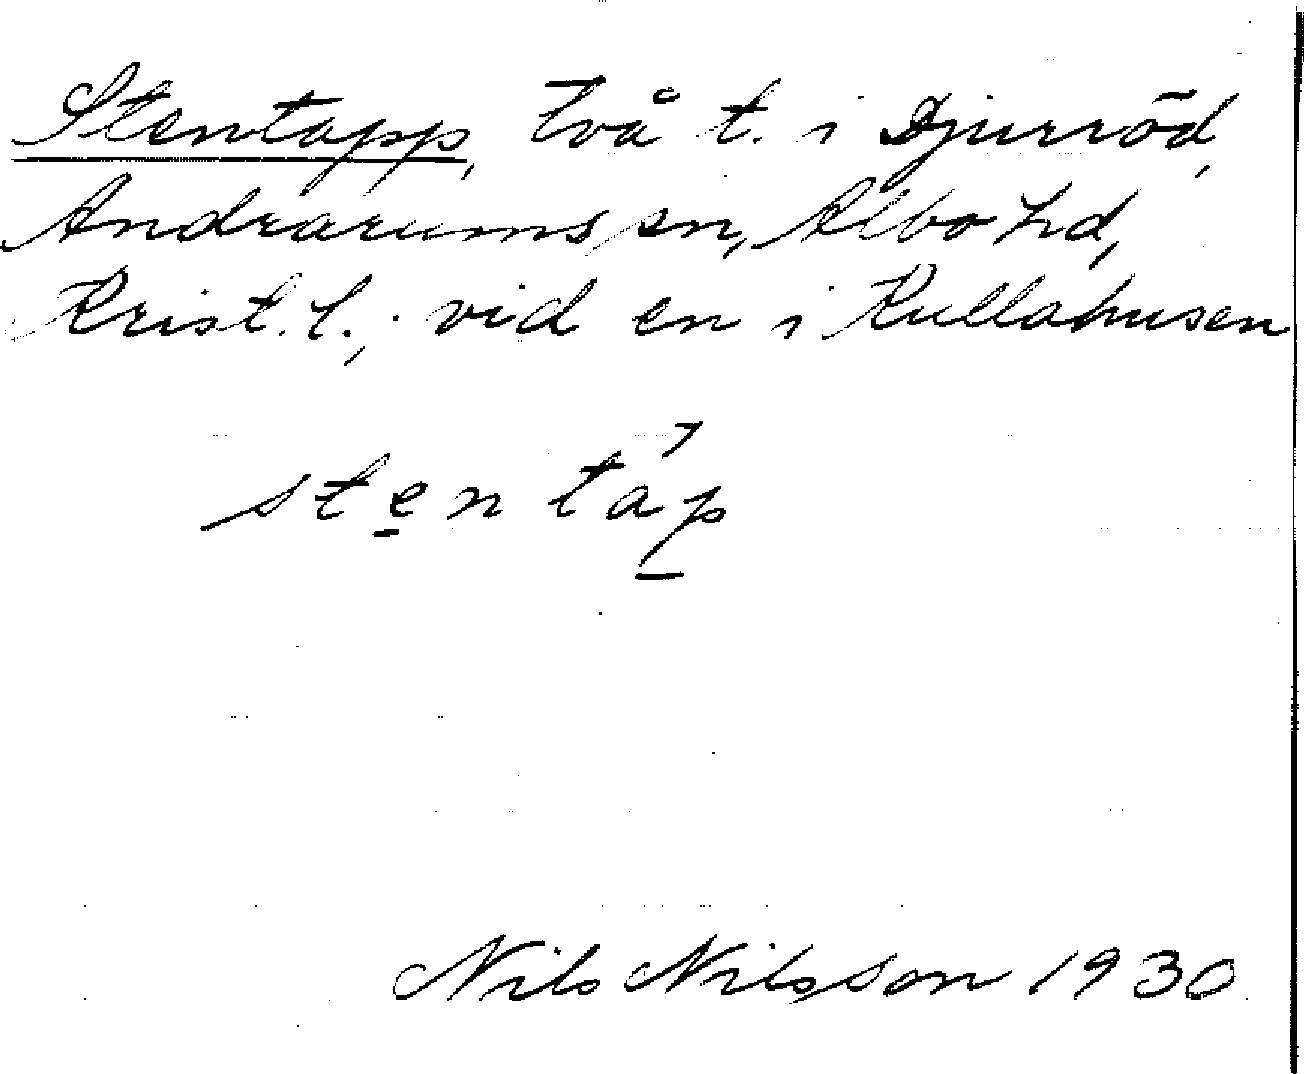 Stentapp, två t. i Djurröd,
Andrarums sn, Albo hd,
Krist. l., vid en i Kullahusen
stentáp
Nils Nilsson 1930